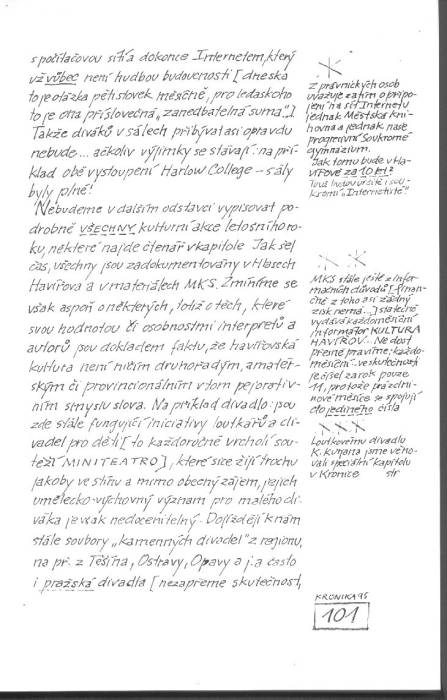 s počítačovou sítí a dokonce Internetem, který
už vůbec není hudbou budoucnosti [dneska
to je otázka pěti stovek měsíčně, pro leckoho
to je ona příslovečná „zanedbatelná suma“.]
Takže diváků v sálech přibývat asi opravdu
nebude... ačkoliv výjimky se stávají: na pří-
klad obě vystoupení Harlow College – sály
byly plné!
Nebudeme v dalším odstavci vypisovat po-
drobně všechny kulturní akce letošního ro-
ku, některé najde čtenář v kapitole Jak šel
čas, všechny jsou zadokumentovány v Hlasech
Havířova a v materiálech MKS. Zmíníme se
však aspoň o některých, totiž o těch, které
svou hodnotou či osobnostmi interpretů a
autorů jsou dokladem faktu, že havířovská
kultura není ničím druhořadým, amatér-
ským či provincionálním v tom pejorativ-
ním smyslu slova. Na příklad divadlo: jsou
zde stále fungující iniciativy loutkářů a di-
vadel pro děti [to každoročně vrcholí sou-
těží MINITEATRO], které sice žijí trochu
jakoby ve stínu a mimo obecný zájem, jejich
umělecko-výchovný význam pro malého di-
váka je však nedocenitelný. Dojíždějí k nám
stále soubory „kamenných divadel“ z regionu,
na př. z Těšína, Ostravy, Opavy a j. a často
i pražská divadla [nezapřeme skutečnost,
Z právnických osob
uvažuje zatím o připo-
jení na síť Internetu
jednak Městská kni-
hovna a jednak naše
progresivní Soukromé
gymnázium.
Jak tomu bude v Ha-
vířově za 10 let?
MKS stále ještě z infor-
mačních důvodů [finan-
čně z toho asi žádný
zisk nemá...] statečně
vydává každoměsíční
Informátor KULTURA
HAVÍŘOV. Ne dost
přesně pravíme: každo-
měsíční - ve skutečnosti
je čísel za rok pouze
11, protože prázdni-
nové měsíce se spojují
do jediného čísla
Loutkovému divadlu
K. Kunjana jsme věno-
vali speciální kapitolu
v Kronice str
KRONIKA 95
101